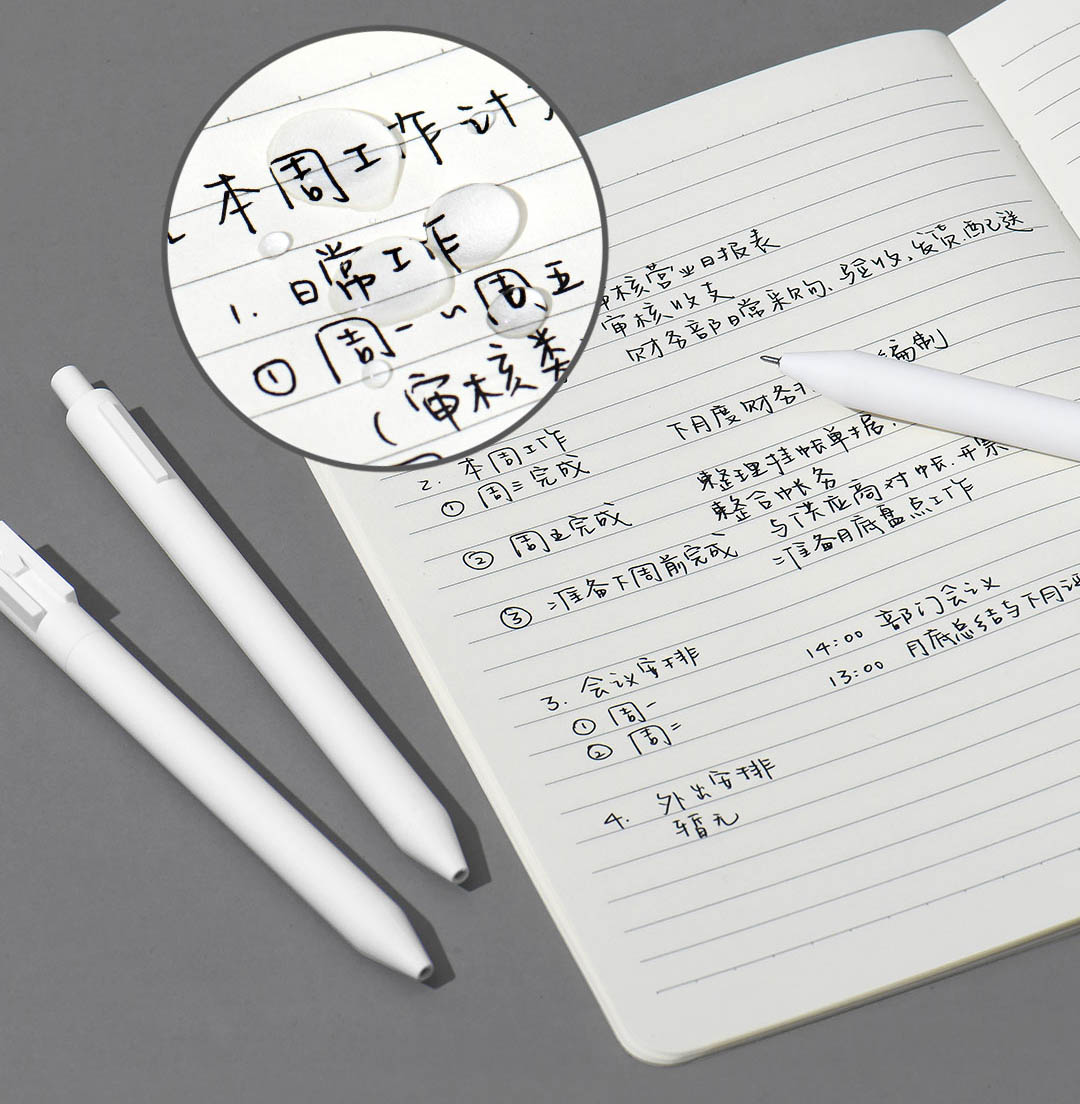 本周工作计
1. 日常工作
① 周一~周五
(审核类
审核营业日报表
审核收支
财务部日常采购、验收、发货、配送
2. 本周工作
① 周三完成 下月度财务 编制
② 周五完成 整理挂帐单据.
整合帐务
与供应商对帐.开票
③ 准备下周前完成 准备月底盘点工作
3. 会议安排
① 周一 14:00 部门会议
② 周二 13:00 月底总结与下月
4. 外出安排
暂无